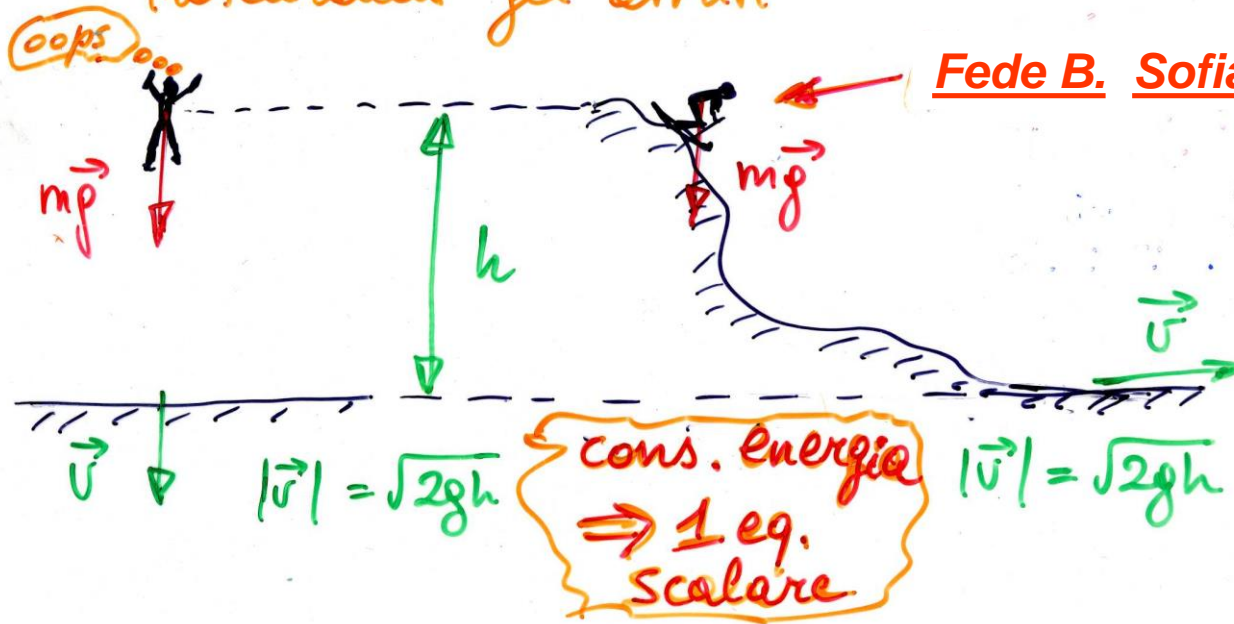 oops
Fede B. Sofia
mg
mg
h
v
v
|v| = √2gh
cons. energia
⇒ 1 eq.
scalare
|v| = √2gh